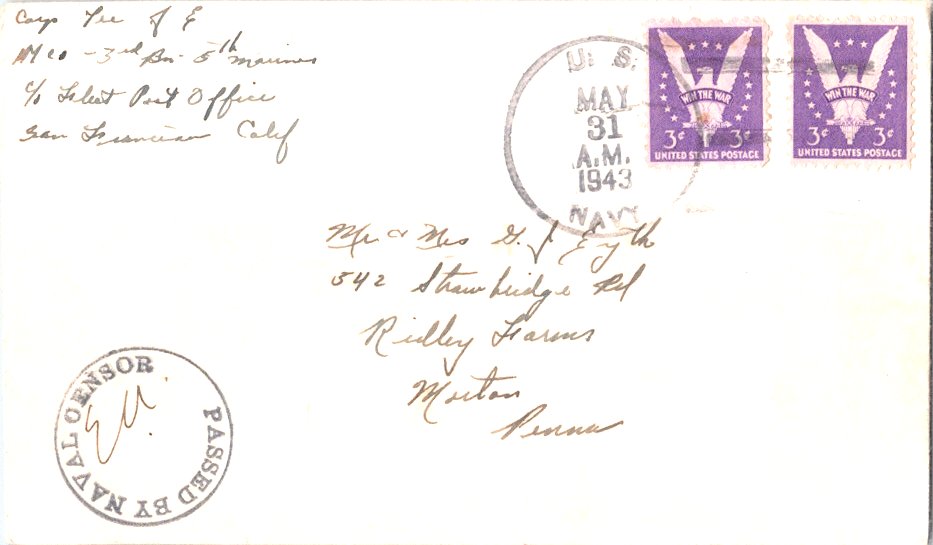 Corp Tee J E
M Co - 3rd Bn - 5th Marines
c/o Fleet Post Office
San Francisco Calif
U. S.
MAY
31
A.M.
1943
NAVY
WIN THE WAR
3¢ 3¢
UNITED STATES POSTAGE
WIN THE WAR
3¢ 3¢
UNITED STATES POSTAGE
Mr & Mrs G. J. Eyth
542 Strawbridge Rd
Ridley Farms
Morton
Penna
PASSED BY NAVAL CENSOR